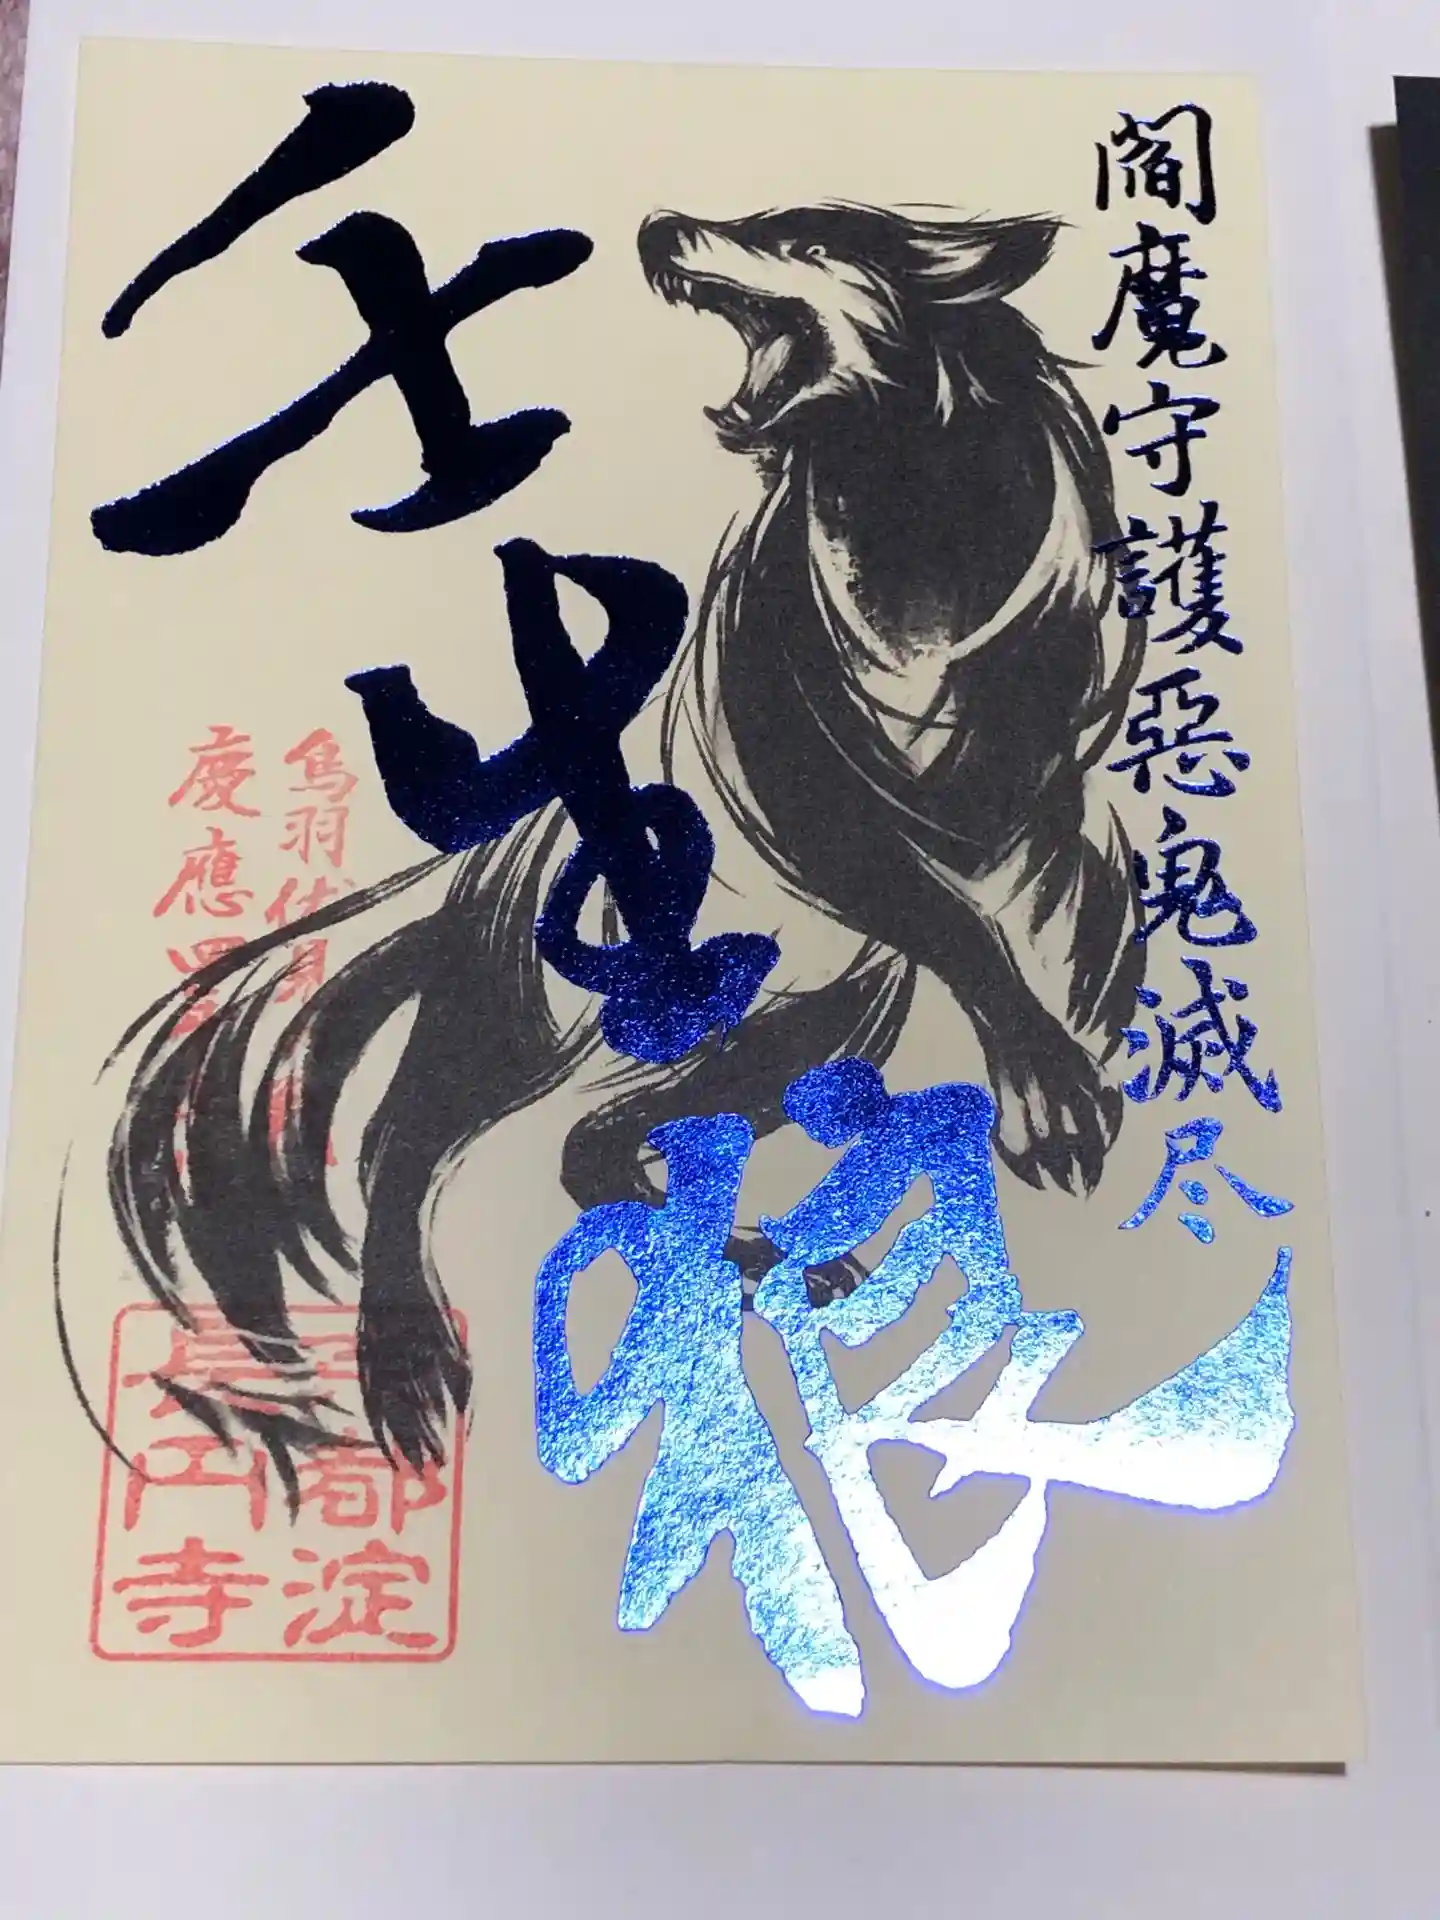 閻魔守護惡鬼滅尽
壬生狼
鳥羽伏見
慶應四
都淀
長円寺